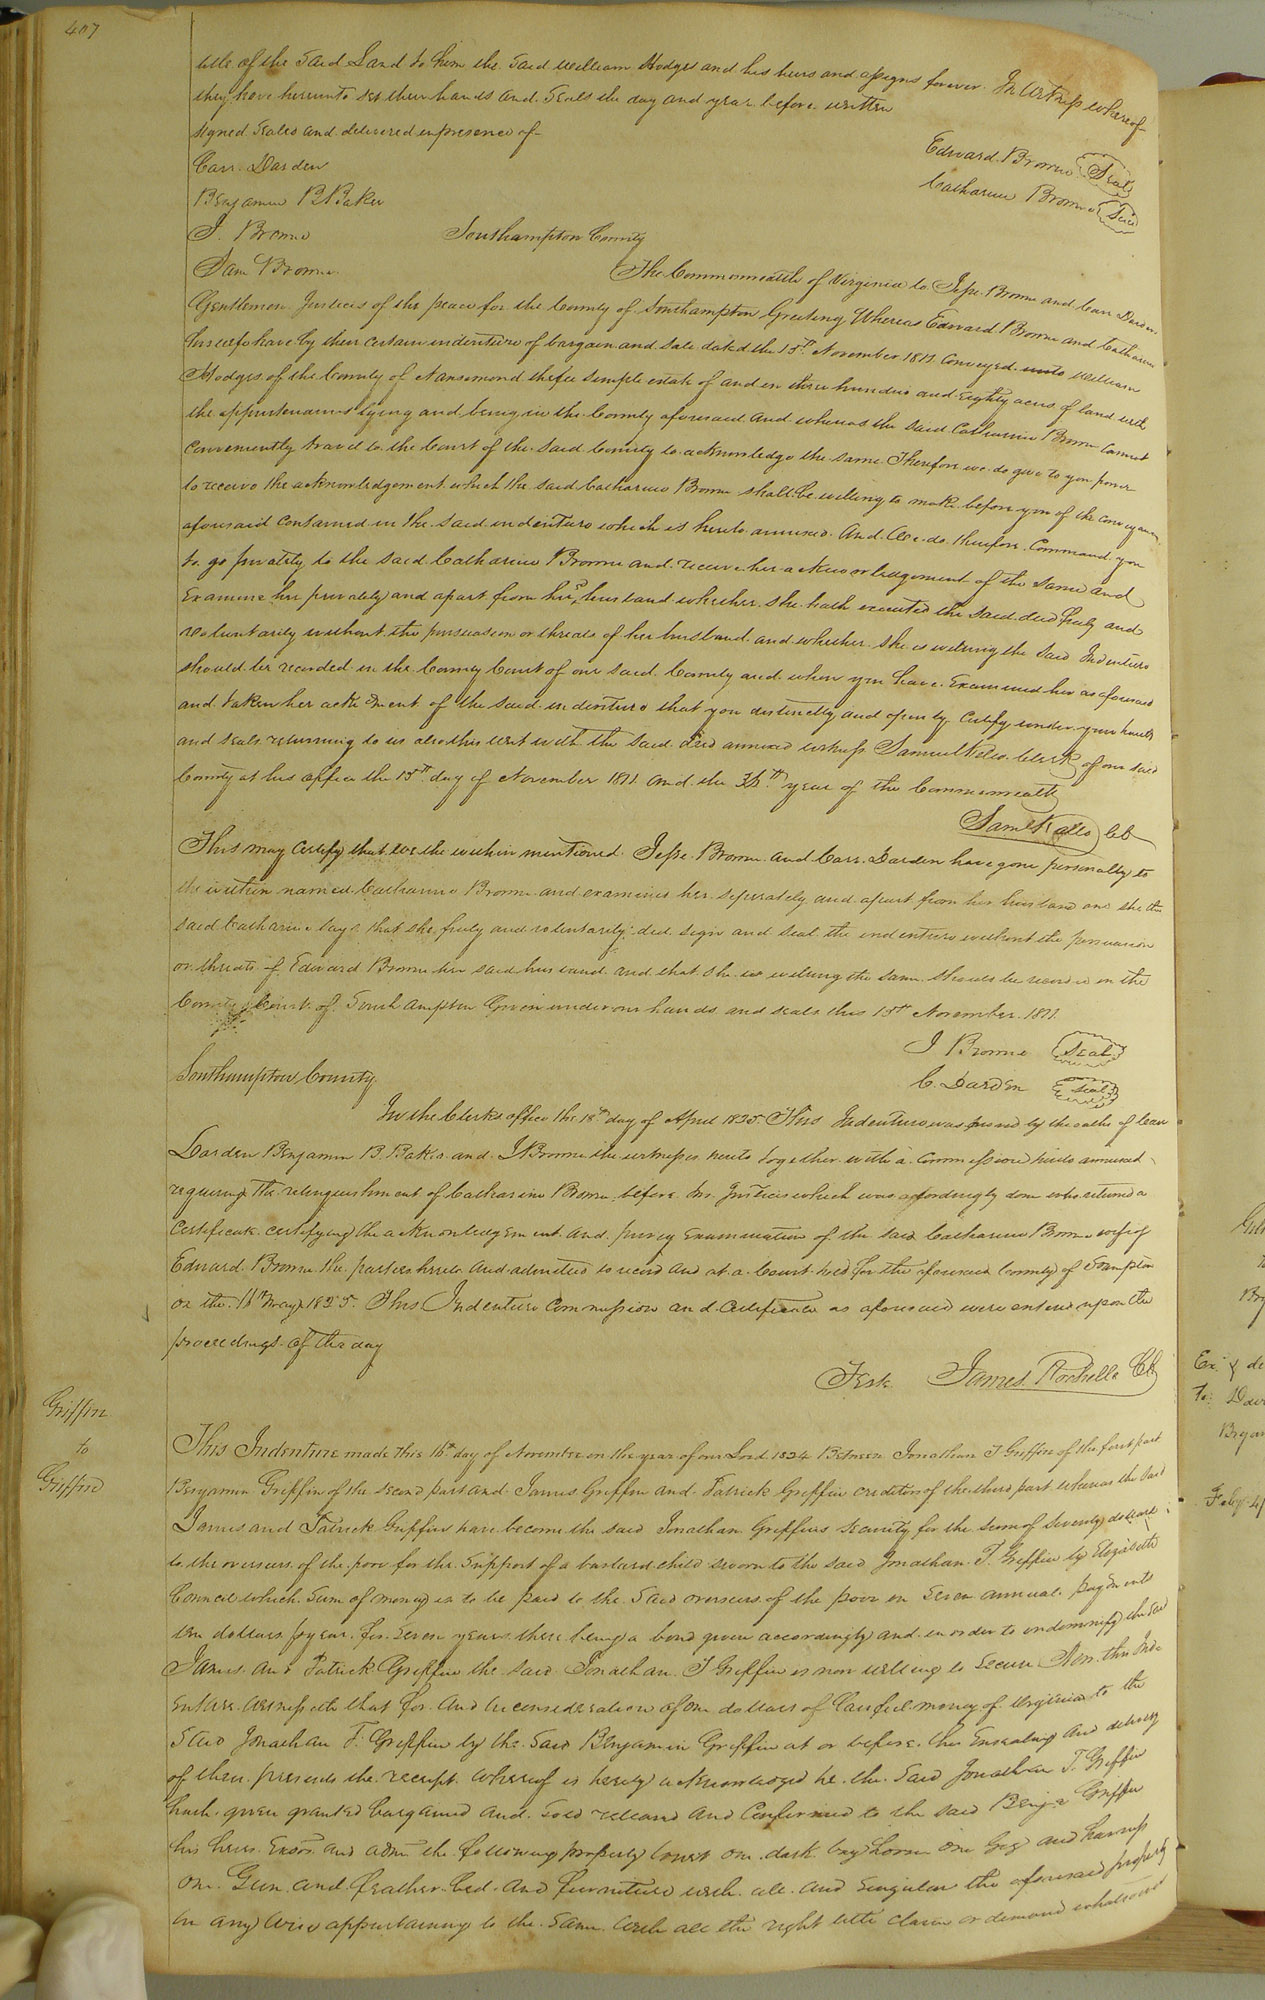 407
title of the said Land to him the said William Hodges and his heirs and assigns forever. In witness whereof
they have hereunto set their hands and seals the day and year before written
signed sealed and delivered in presence of
Carr Darden
Edward Browne Seal
Benjamin B Baker
Catharine Browne Seal
J. Browne Southampton County
Sam Browne
The Commonwealth of Virginia to Jesse Browne and Carr Darden
Gentlemen Justices of the peace for the County of Southampton Greeting Whereas Edward Browne and Catharine
his wife have by their certain indenture of bargain and sale dated the 15th November 1811 conveyed unto William
Hodges of the County of Nansemond the fee simple estate of and in three hundred and Eighty acres of land with
the appurtenances lying and being in the County aforesaid and whereas the said Catharine Browne cannot
conveniently travel to the Court of the said County to acknowledge the same Therefore we do give to you power
to receive the acknowledgement which the said Catharine Browne shall be willing to make before you of the conveyance
aforesaid contained in the said indenture which is hereto annexed And We do therefore Command you
to go privately to the said Catharine Browne and receive her acknowledgement of the same and
Examine her privately and apart from her sd husband whether she hath executed the said deed freely and
voluntarily without the persuasion or threats of her husband and whether she is willing the said Indenture
should be recorded in the County Court of our said County and when you have Examined her as aforesaid
and taken her ackt ment of the said indenture that you distinctly and openly Certify under your hands
and seals returning to us also this writ with the said deed annexed witness Samuel Kello Clerk of our said
County at his office the 15th day of November 1811 and the 36th year of the Commonwealth
Saml Kello Cl
This may Certify that we the within mentioned Jesse Browne and Carr Darden have gone personally to
the within named Catharine Browne and examined her seperately and apart from her husband and she the
said Catharine says that she freely and voluntarily did sign and seal the indenture without the persuasion
or threats of Edward Browne her said husband and that she is willing the same should be record in the
County Court of Southampton Given under our hands and seals this 15th November 1811
J Browne Seal
C. Darden Seal
Southampton County
In the Clerks office the 18th day of April 1825 This Indenture was proved by the oaths of Carr
Darden Benjamin B. Baker and J Browne the witnesses hereto together with a commission hereto annexed
requiring the relinquishment of Catharine Browne before two Justices which was accordingly done who returned a
Certificate certifying the acknowledgement and privy Examination of the said Catharine Browne wife of
Edward Browne the parties hereto and admitted to record And at a Court held for the aforesaid County of Shampton
on the 16th May 1825. This Indenture Commission and Certificate as aforesaid were entered upon the
proceedings of the day
Teste James Rochelle Clk
Griffin
to
Griffin
This Indenture made this 16th day of November in the year of our Lord 1824 Between Jonathan T Griffin of the first part
Benjamin Griffin of the second part and James Griffin and Patrick Griffin creditors of the third part whereas the said
James and Patrick Griffin have become the said Jonathan Griffins security for the sum of seventy dollars
to the overseers of the poor for the support of a bastard child sworn to the said Jonathan T. Griffin by Elizabeth
Council which sum of money is to be paid to the said overseers of the poor in seven annual payments
ten dollars pr year for seven years there being a bond given accordingly and in order to indemnify the said
James and Patrick Griffin the said Jonathan T Griffin is now willing to secure Now this Ind-
enture witnesseth that for and in consideration of one dollars of lawful money of Virginia to the
said Jonathan T. Griffin by the said Benjamin Griffin at or before the Ensealing and delivery
of these presents the receipt whereof is hereby acknowledged he the said Jonathan T. Griffin
hath given granted bargained and sold released and Confirmed to the said Benja Griffin
his heirs Exors and admrs the following property towit one dark bay horse one Gig and harness
one Gun and feather bed and furniture with all and singular the aforesaid property
in any wise appertaining to the same with all the right title claim or demand whatsoever
Ex. & de
To
Feby 4